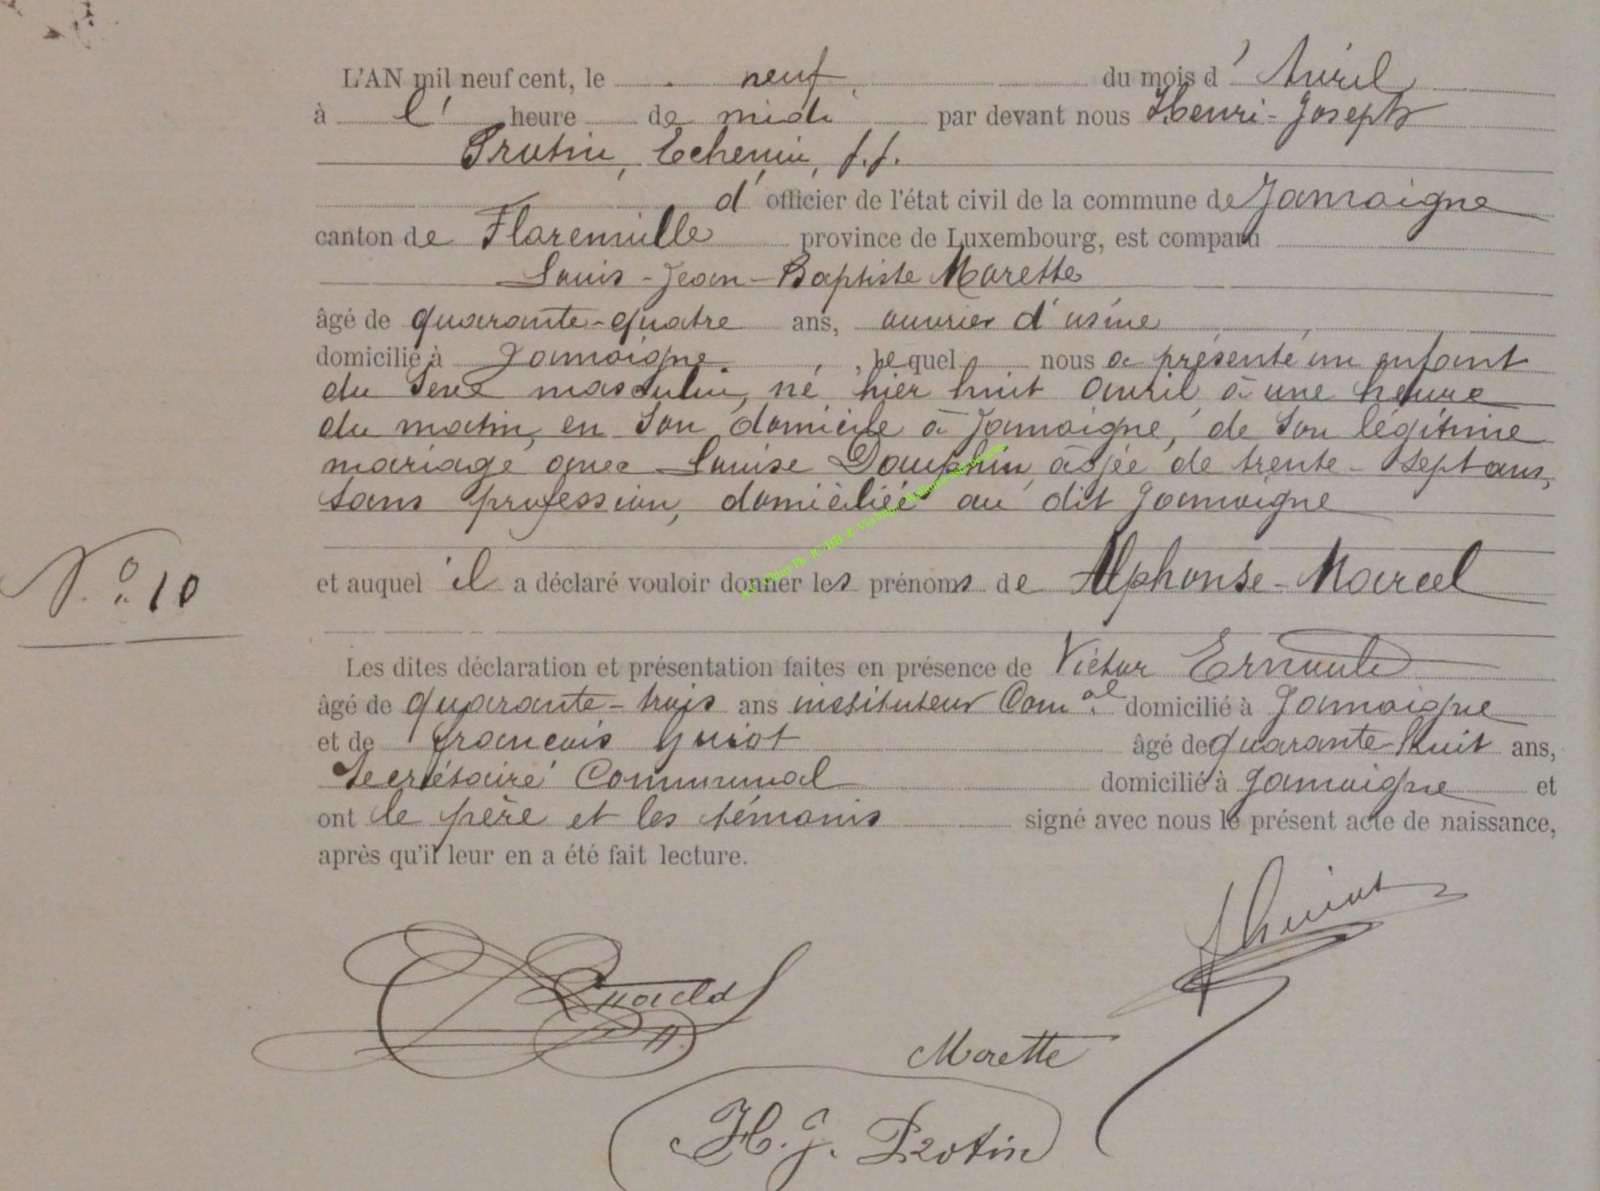 L'AN mil neuf cent, le neuf du mois d' Avril
à l' heure de midi par devant nous Henri-Joseph
Protin, Echevin, f.f.
d' officier de l'état civil de la commune de Jamoigne
canton de Florenville province de Luxembourg, est comparu
Louis-Jean-Baptiste Marette
âgé de quarante-quatre ans, ouvrier d'usine
domicilié à Jamoigne, lequel nous a présenté un enfant
du sexe masculin, né hier huit avril à une heure
du matin, en son domicile à Jamoigne, de son légitime
mariage avec Louise Dauphin, âgée de trente-sept ans,
sans profession, domiciliée au dit Jamoigne
N.° 10
et auquel il a déclaré vouloir donner les prénoms de Alphonse-Marcel
Les dites déclaration et présentation faites en présence de Victor
âgé de quarante-trois ans instituteur Com.al domicilié à Jamoigne
et de François Guiot âgé de quarante-huit ans,
secrétaire Communal domicilié à Jamoigne et
ont le père et les témoins signé avec nous le présent acte de naissance,
après qu'il leur en a été fait lecture.
Marette
H. J. Protin